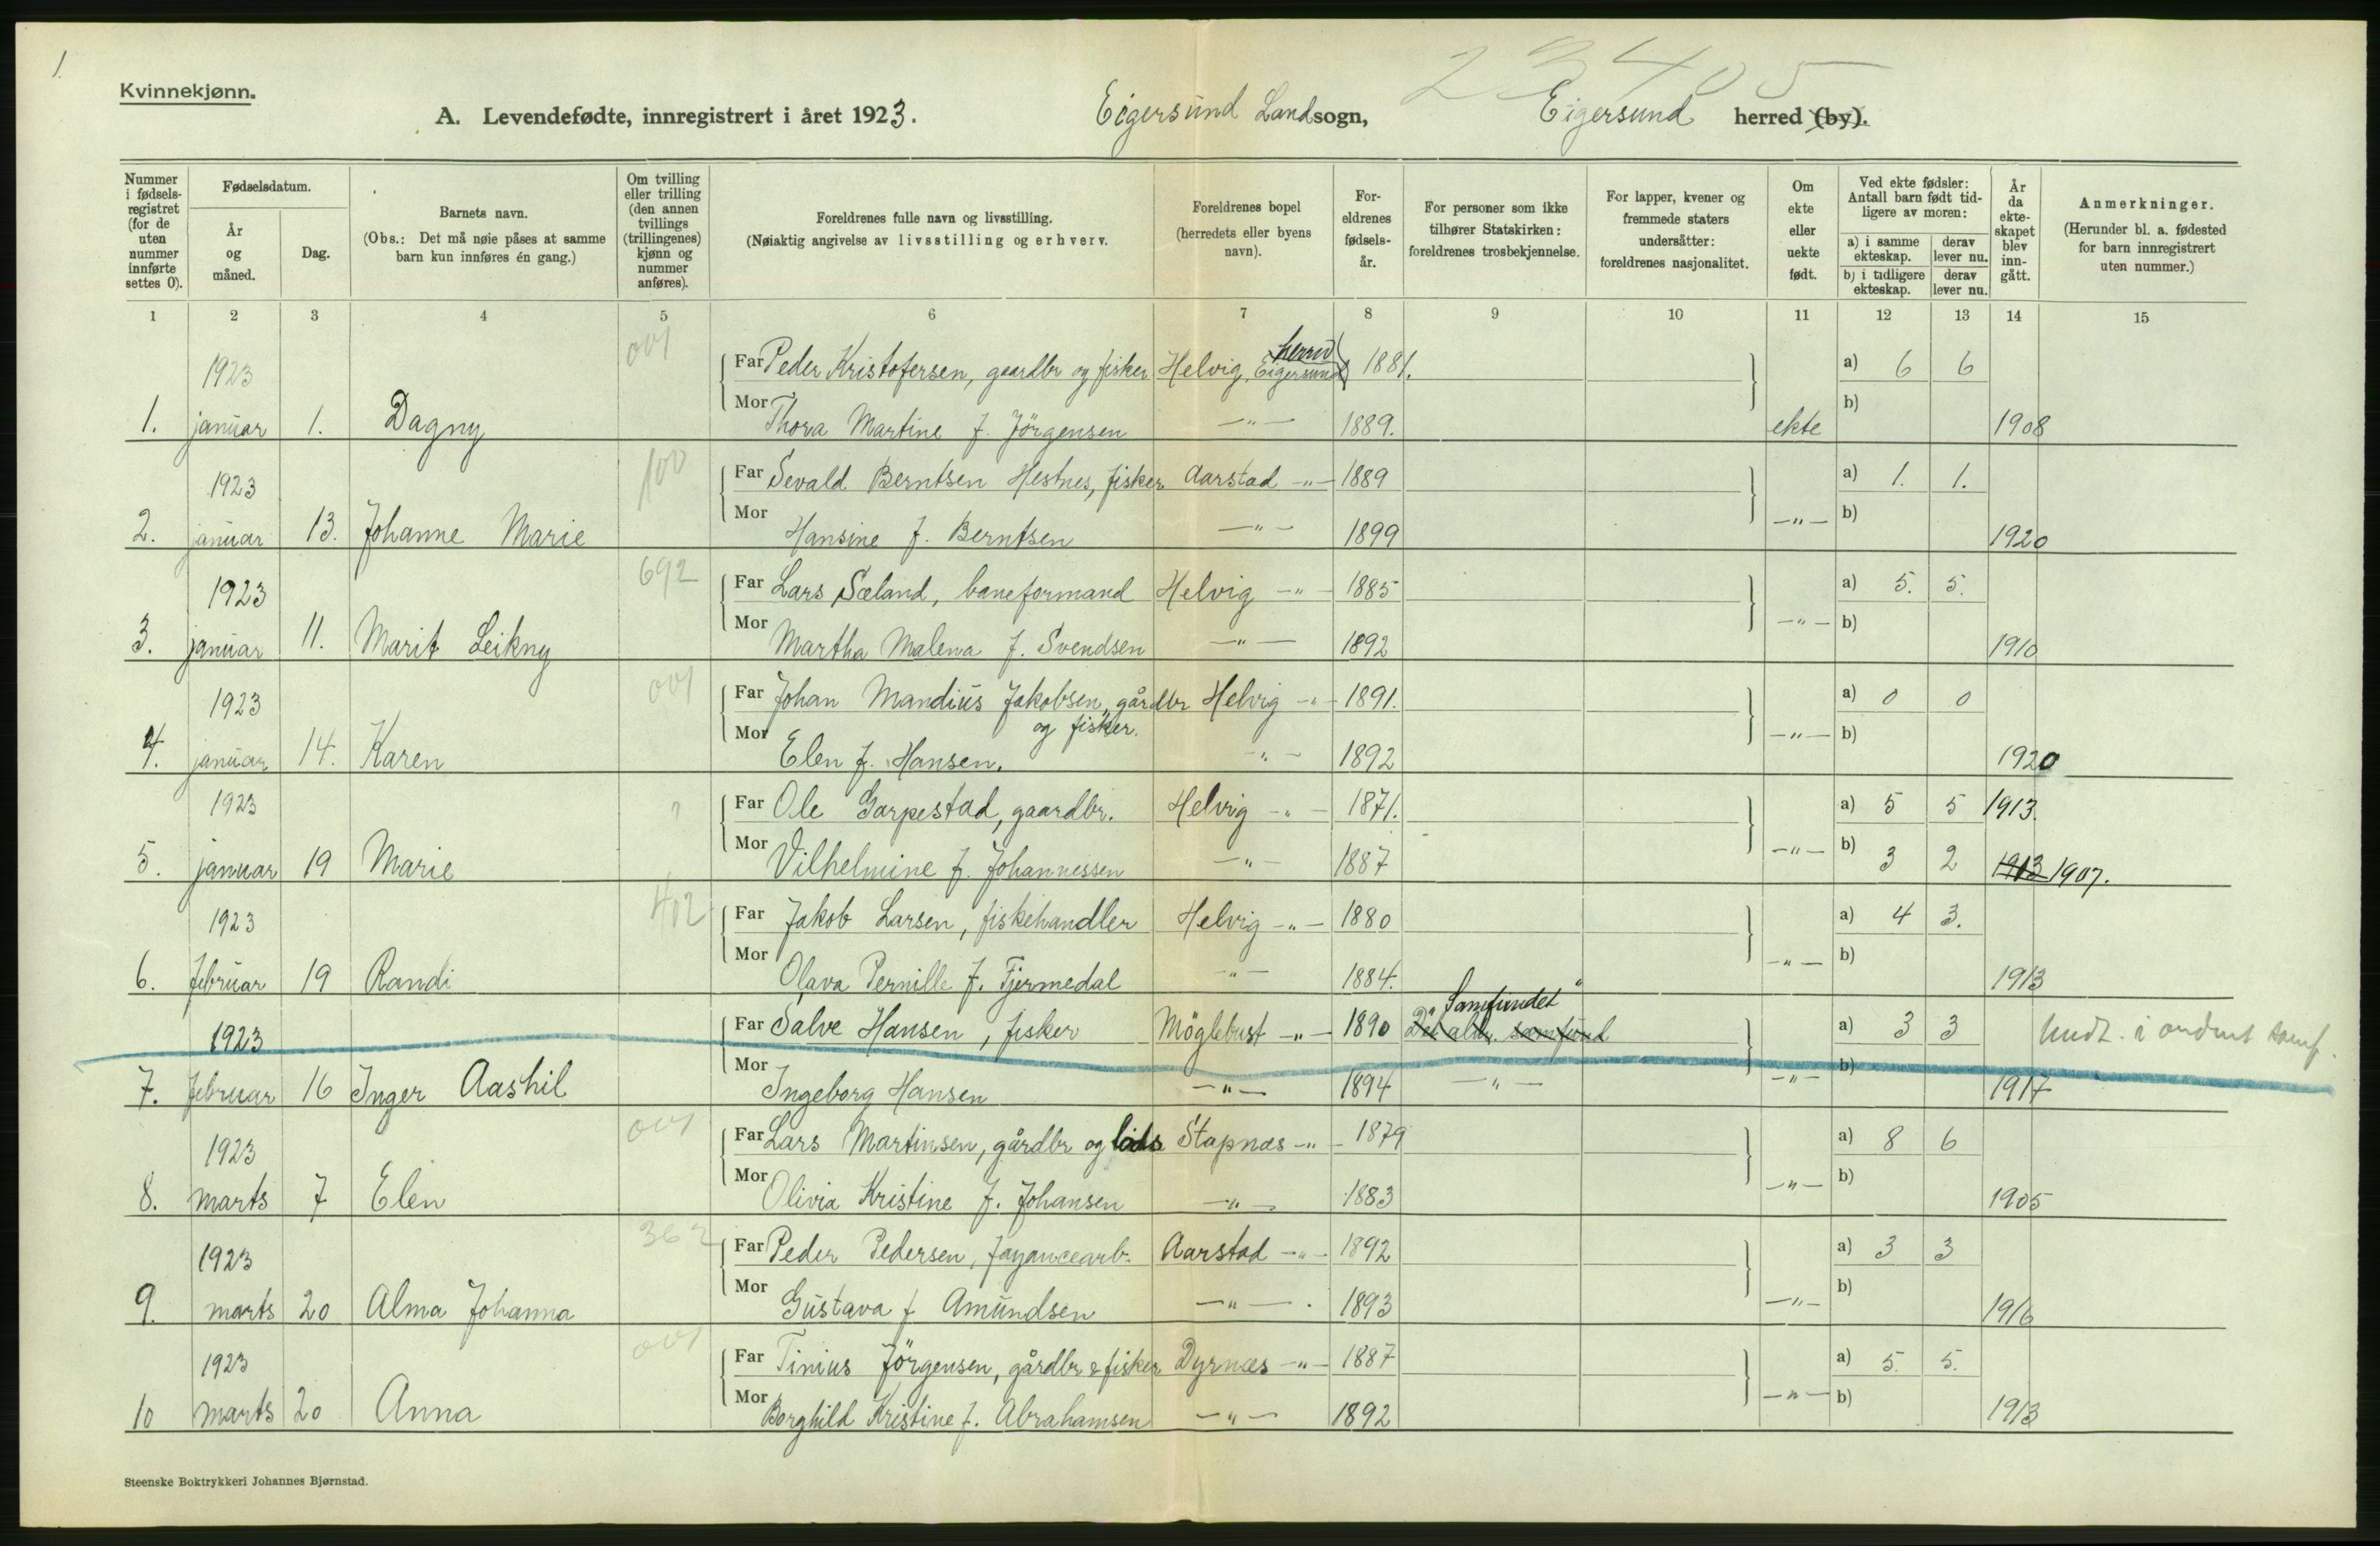 1.
Kvinnekjønn.
23405
A. Levendefødte, innregistrert i året 1923. Eigersund Landsogn, Eigersund herred (by).
Nummer i fødsels-registret (for de uten nummer innførte settes 0).
Fødselsdatum.
År og måned.
Dag.
Barnets navn.
(Obs.: Det må nøie påses at samme barn kun innføres én gang.)
Om tvilling eller trilling (den annen tvillings (trillingenes) kjønn og nummer anføres).
Foreldrenes fulle navn og livsstilling.
(Nøiaktig angivelse av livsstilling og erhverv.
Foreldrenes bopel (herredets eller byens navn).
For-eldrenes fødsels-år.
For personer som ikke tilhører Statskirken: foreldrenes trosbekjennelse.
For lapper, kvener og fremmede staters undersåtter: foreldrenes nasjonalitet.
Om ekte eller uekte født.
Ved ekte fødsler: Antall barn født tid-ligere av moren:
a) i samme ekteskap. derav lever nu.
b) i tidligere ekteskap. derav lever nu.
År da ekte-skapet blev inn-gått.
Anmerkninger.
(Herunder bl. a. fødested for barn innregistrert uten nummer.)
1 2 3 4 5 6 7 8 9 10 11 12 13 14 15
1923 001 Far Peder Kristofersen, gaardbr og fisker Helvig, Eigersund herred 1881. a) 6 6
1. januar 1. Dagny Mor Thora Martine f. Jörgensen —"— 1889. ekte b) 1908
1923 100 Far Sevald Berntsen Hestnes, fisker Aarstad —"— 1889 a) 1. 1.
2. januar 13. Johanne Marie Mor Hansine f. Berntsen —"— 1899 —"— b) 1920
1923 692 Far Lars Sæland, baneformand Helvig —"— 1885 a) 5. 5.
3. januar 11. Marit Leikny Mor Martha Malena f. Svendsen —"— 1892 —"— b) 1910
1923 001 Far Johan Mandius Jakobsen, gårdbr Helvig —"— 1891. a) 0 0
og fisker.
4. januar 14. Karen Mor Elen f. Hansen. —"— 1892 —"— b) 1920
1923 ? Far Ole Garpestad, gaardbr. Helvig —"— 1871. a) 5 5 1913.
5. januar 19 Marie Mor Vilhelmine f. Johannessen —"— 1887 —"— b) 3 2 1913 1907.
1923 402 Far Jakob Larsen, fiskehandler Helvig —"— 1880 a) 4 3.
6. februar 19 Randi Mor Olava Pernille f. Tjermedal —"— 1884. —"— b) 1913
"Samfundet"
1923 Far Salve Hansen, fisker Möglebust —"— 1890 Det alm. samfund a) 3 3 i andmt samf.
7. februar 16 Inger Aashil Mor Ingeborg Hansen —"— 1894 —"— —"— b) 1917
1923 001 Far Lars Martinsen, gårdbr og lods Stapnæs —"— 1879 a) 8 6
8. marts 7 Elen Mor Olivia Kristine f. Johansen —"— 1883 —"— b) 1905
1923 362 Far Peder Pedersen, fayancearb. Aarstad —"— 1892 a) 3 3
9. marts 20 Alma Johanna Mor Gustava f Amundsen —"— 1893 —"— b) 1916
1923 001 Far Tinius Jörgensen, gårdbr & fisker Dyrnæs —"— 1887 a) 5. 5.
10 marts 20 Anna Mor Borghild Kristine f. Abrahamsen —"— 1892 —"— b) 1913
Steenske Boktrykkeri Johannes Bjørnstad.